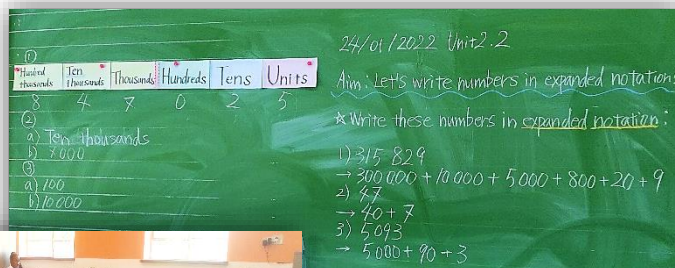 ①
Hundred thousands Ten thousands Thousands Hundreds Tens Units
8 4 7 0 2 5
②
a) Ten thousands
b) 7000
③
a) 100
b) 10 000
24/01/2022 Unit2.2
Aim: Let's write numbers in expanded notations
★ Write these numbers in expanded notation:
1) 315 829
→ 300 000 + 10 000 + 5 000 + 800 + 20 + 9
2) 47
→ 40 + 7
3) 5093
→ 5000 + 90 + 3